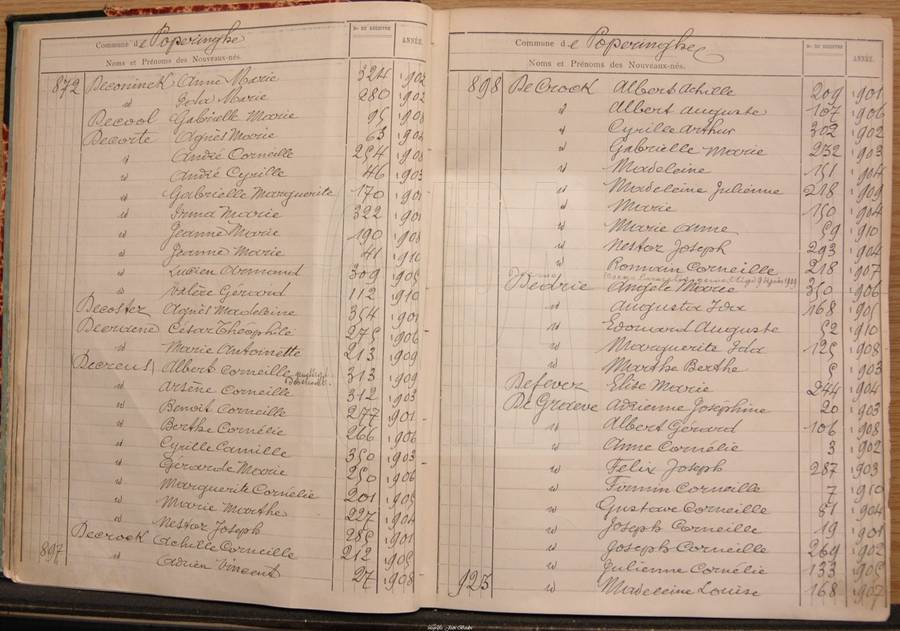 Commune de Poperinghe
Nº DU REGISTRE
ANNÉE
Noms et Prénoms des Nouveaux-nés.
872 Deconinck Anne Marie 324 1902
id Ida Marie 280 1902
Decool Gabrielle Marie 95 1908
Decorte Agnès Marie 63 1902
id André Corneille 254 1908
id André Cyrille 46 1903
id Gabrielle Marguerite 170 1901
id Irma Marie 322 1901
id Jeanne Marie 190 1908
id Jeanne Marie 41 1910
id Lucien Armand 309 1905
id Valère Gérard 112 1910
Decoster Agnès Madeleine 354 1901
César Théophile 275 1906
id Marie Antoinette 213 1909
Decreus Albert Corneille 313 1909
id Arsène Corneille 312 1903
id Benoit Corneille 277 1901
id Berthe Cornélie 266 1906
id Cyrille Camille 350 1903
id Gérarde Marie 250 1906
id Marguerite Cornélie 201 1905
id Marie Marthe 227 1904
id Nestor Joseph 285 1901
Decrock Achille Corneille 212 1905
897 id Adrien Vincent 27 1908
Commune de Poperinghe
Nº DU REGISTRE
ANNÉE
Noms et Prénoms des Nouveaux-nés.
898 DeCrock Albert Achille 209 1901
id Albert Auguste 107 1906
id Cyrille Arthur 302 1902
id Gabrielle Marie 232 1903
id Madeleine 151 1904
id Madeleine Julienne 218 1909
id Marie 150 1904
id Marie Anne 59 1910
id Nestor Joseph 293 1904
id Romain Corneille 218 1907
Dedrie Angèle Marie 350 1906
id Augusta Ida 168 1905
id Edouard Auguste 52 1910
id Marguerite Ida 125 1908
id Marthe Berthe 5 1903
Defever Elise Marie 244 1904
De Graeve Adrienne Joséphine 20 1903
id Albert Gérard 106 1908
id Anne Cornélie 3 1902
id Felix Joseph 287 1903
id Firmin Corneille 7 1910
id Gustave Corneille 51 1904
id Joseph Corneille 19 1901
id Joseph Corneille 269 1902
id Julienne Cornélie 133 1905
923 id Madeleine Louise 168 1907